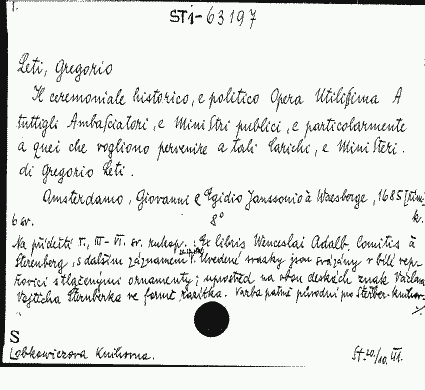 STi-63197
Leti, Gregorio
Il ceremoniale historico, e politico Opera Utilissima A
tuttigli Ambasciatori, e Ministri publici, e particolarmente
a quei che vogliono pervenire a tali Carichi, e Ministeri.
di Gregorio Leti.
Amsterdamo, Giovanni e Egidio Janssonio à Waesberge, 1685
6 sv. 8°
Na přídeští I., III-VI. sv. rukop.: Ex libris Wenceslai Adalb. Comitis à
Sterenberg, s dalším záznamem Uvedené svazky jsou svázány v bílé vepřovici
s tlačenými ornamenty; uprostřed na obou deskách znak Václava
Vojtěcha Šternberka ve formě razítka. Vazba patně původní pro
S
Lobkowiczova Knihovna.
St. 20./10. III.